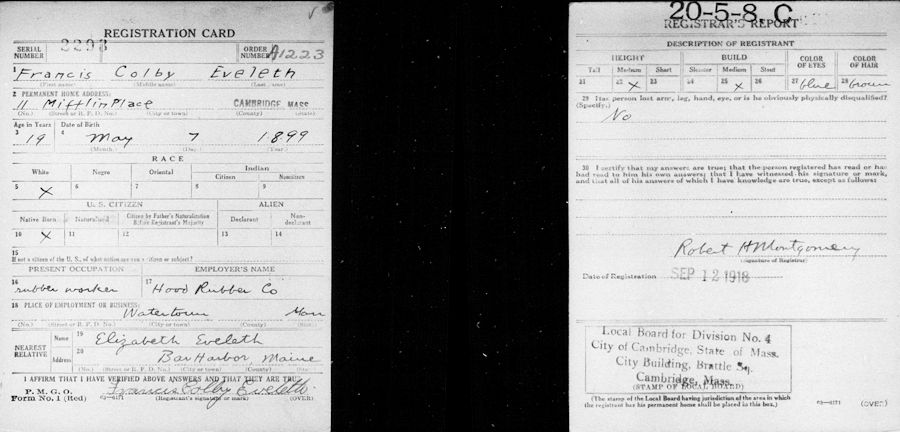 REGISTRATION CARD
SERIAL NUMBER 3293 ORDER NUMBER A1223
1 Francis Colby Eveleth
(First name) (Middle name) (Last name)
2 PERMANENT HOME ADDRESS:
11 Mifflin Place CAMBRIDGE MASS
(No.) (Street or R. F. D. No.) (City or town) (County) (State)
Age in Years Date of Birth
3 19 4 May 7 1899
(Month.) (Day.) (Year.)
RACE
White Negro Oriental Indian
Citizen Noncitizen
5 X 6 7 8 9
U. S. CITIZEN ALIEN
Native Born Naturalized Citizen by Father's Naturalization Before Registrant's Majority Declarant Non-declarant
10 X 11 12 13 14
15
If not a citizen of the U. S., of what nation are you a citizen or subject?
PRESENT OCCUPATION EMPLOYER'S NAME
16 rubber worker 17 Hood Rubber Co
18 PLACE OF EMPLOYMENT OR BUSINESS:
Watertown Mass
(No.) (Street or R. F. D. No.) (City or town) (County) (State)
NEAREST RELATIVE Name 19 Elizabeth Eveleth
Address 20 Bar Harbor Maine
(No.) (Street or R. F. D. No.) (City or town) (County) (State)
I AFFIRM THAT I HAVE VERIFIED ABOVE ANSWERS AND THAT THEY ARE TRUE
P. M. G. O.
Form No. 1 (Red) Francis Colby Eveleth
(Registrant's signature or mark) (OVER)
20-5-8. C
REGISTRAR'S REPORT
DESCRIPTION OF REGISTRANT
HEIGHT BUILD COLOR OF EYES COLOR OF HAIR
Tall Medium Short Slender Medium Stout
21 22 X 23 24 25 X 26 27 blue 28 brown
29 Has person lost arm, leg, hand, eye, or is he obviously physically disqualified?
(Specify.) No
30 I certify that my answers are true; that the person registered has read or has
had read to him his own answers; that I have witnessed his signature or mark,
and that all of his answers of which I have knowledge are true, except as follows:
Robert H Montgomery
(Signature of Registrar)
Date of Registration SEP 12 1918
Local Board for Division No. 4
City of Cambridge, State of Mass.
City Building, Brattle Sq.
Cambridge, Mass.
(STAMP OF LOCAL BOARD)
(The stamp of the Local Board having jurisdiction of the area in which
the registrant has his permanent home shall be placed in this box.)
63-6171 (OVER)